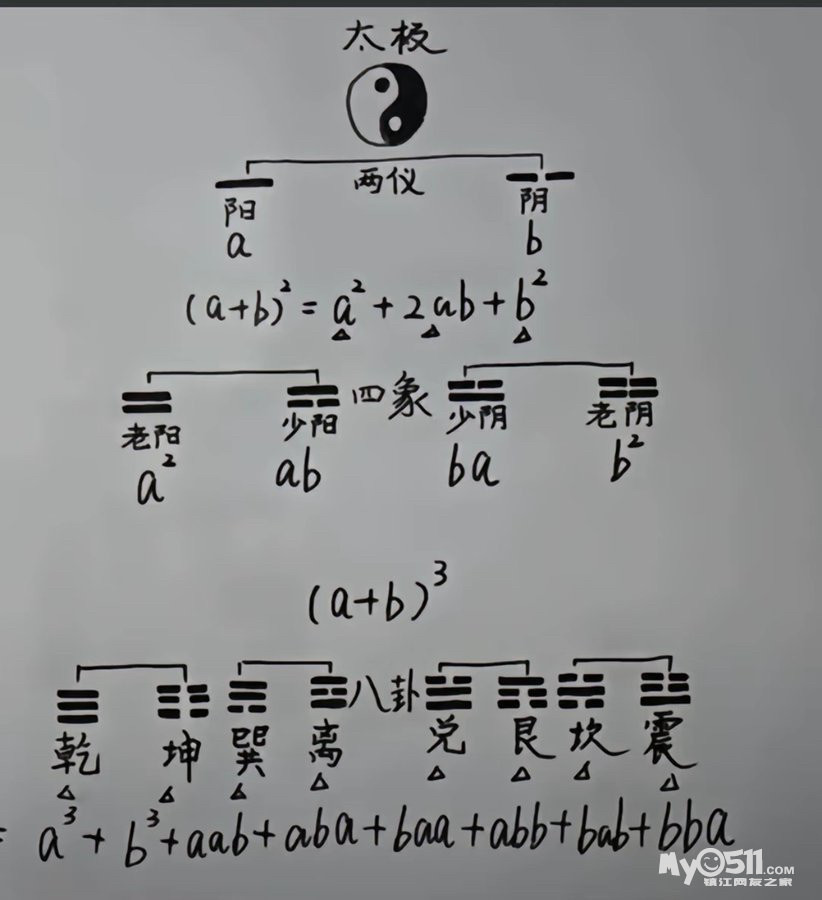 太极
两仪
阳 阴
a b
(a+b)² = a² + 2ab + b²
四象
老阳 少阳 少阴 老阴
a² ab ba b²
(a+b)³
八卦
乾 坤 巽 离 兑 艮 坎 震
= a³ + b³ + aab + aba + baa + abb + bab + bba
My0511.com
镇江网友之家